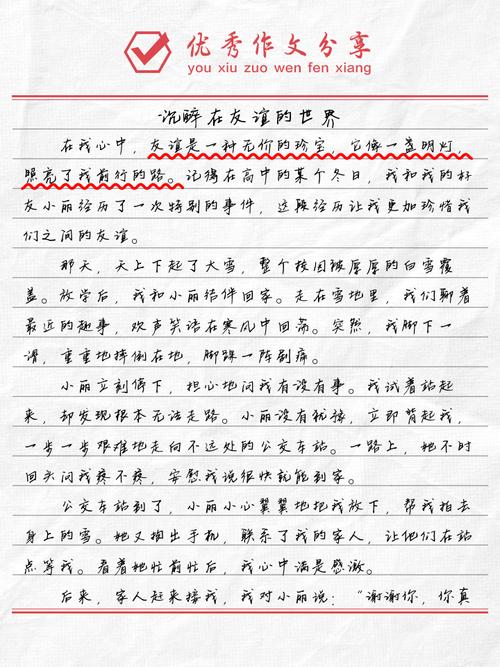 优秀作文分享
you xiu zuo wen fen xiang
沉醉在友谊的世界
在我心中，友谊是一种无价的珍宝，它像一盏明灯，
照亮了我前行的路。记得在高中的某个冬日，我和我的好
友小丽经历了一次特别的事件，这段经历让我更加珍惜我
们之间的友谊。
那天，天上下起了大雪，整个校园被厚厚的白雪覆
盖。放学后，我和小丽结伴回家。走在雪地里，我们聊着
最近的趣事，欢声笑语在寒风中回荡。突然，我脚下一
滑，重重地摔倒在地，脚踝一阵剧痛。
小丽立刻停下，担心地问我有没有事。我试着站起
来，却发现根本无法走路。小丽没有犹豫，立即背起我，
一步一步艰难地走向不远处的公交车站。一路上，她不时
回头问我疼不疼，安慰我说很快就能到家。
公交车站到了，小丽小心翼翼地把我放下，帮我拍去
身上的雪。她又掏出手机，联系了我的家人，让他们在站
点等我。看着她忙前忙后，我心中满是感激。
后来，家人赶来接我，我对小丽说：“谢谢你，你真